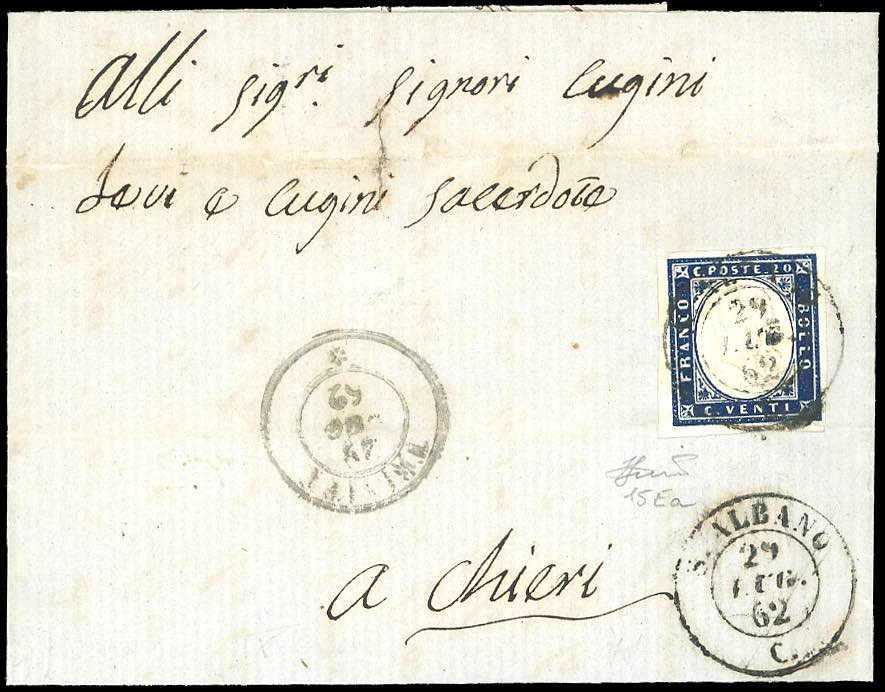 Alli Sigri. Signori Cugini
Levi e Cugini Sacerdote
C. POSTE. 20
FRANCO
BOLLO
C. VENTI
29
LUG.
62
15Ea
a Chieri
S. ALBANO
29
LUG.
62
C.